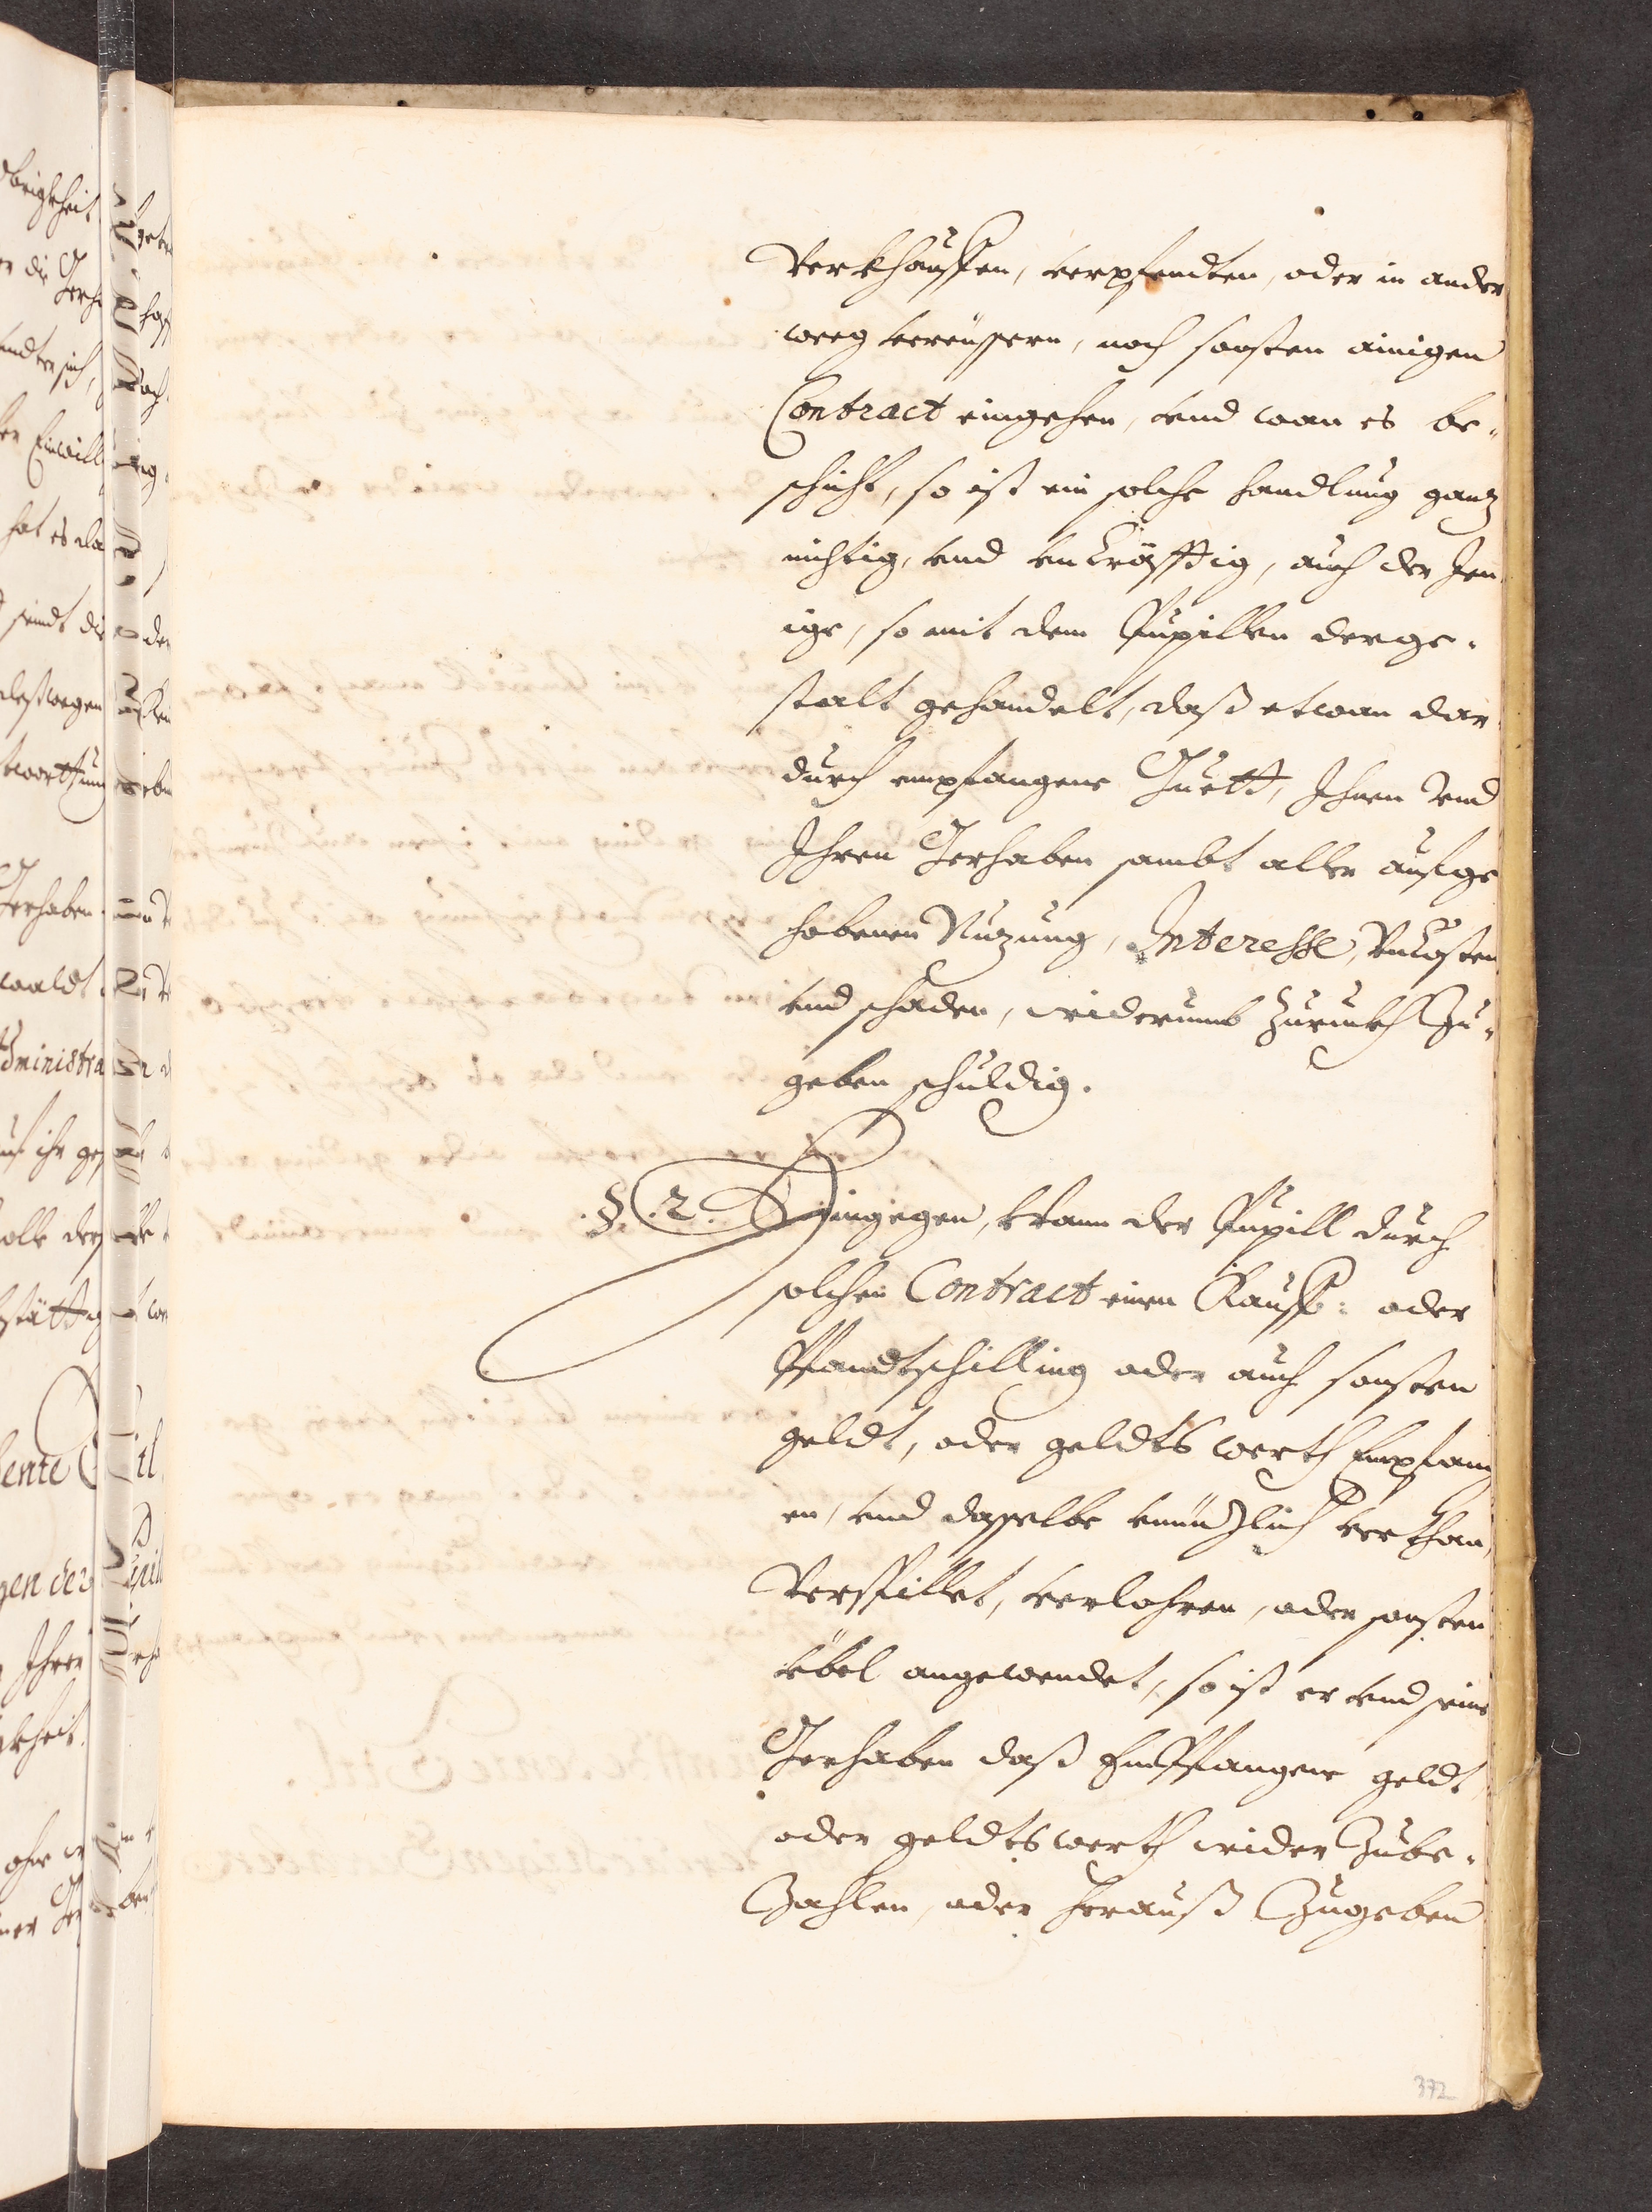 Verkhauffen, verpfendten, oder in ander
weeg vereüssern, noch sonsten ainigen
Contract eingehen, vnd wan es be-
schicht, so ist ein solche handlung gantz
nichtig, vnd vnkräfftig, auch der Jen
ige, so mit dem Pupillen derge-
stalt gehandelt, daß etwan dar
durch empfangene Guett, Ihnen vnd
Ihren Gerhaben sambt aller aufge
hobenen Nuzung, Interesse, Vnkosten
vnd schaden, widerumb zurukh zu-
geben schuldig.
§. 2. Hingegen, kkann der Pupill durch
solchen Contract einen Kauff: oder
Pfandtschilling oder auch sonsten
geldt, oder geldts werth Empfang
en, vnd dasselbe vnnüzlich verthan,
Verspillet, verlohren, oder sonsten
übel angewendet, so ist er vnd seine
Gerhaben daß Empfangene geldt
oder geldts werth wider zube-
zahlen, oder herauß zugeben
372